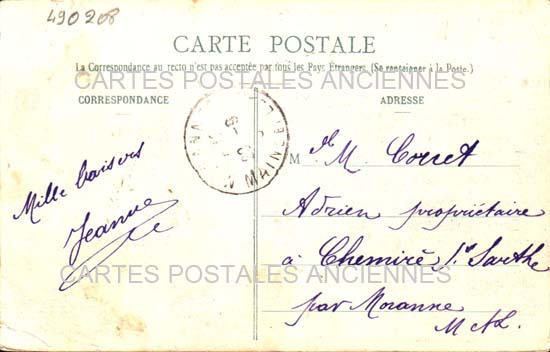 490208
CARTE POSTALE
La Correspondance au recto n'est pas acceptée par tous les Pays Etrangers. (Se renseigner à la Poste.)
CARTES POSTALES ANCIENNES
CORRESPONDANCE
ADRESSE
Mille baisers
Jeanne
M
M.
Adrien propriétaire
à Chemiré s/ Sarthe
par Moranne
M et L.
MAINE
CARTES POSTALES ANCIENNES
CARTES POSTALES ANCIENNES